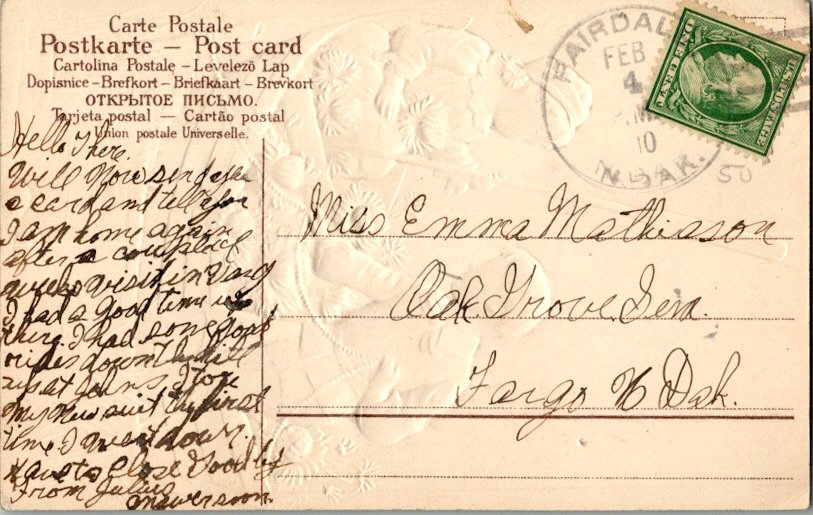 Carte Postale
Postkarte — Post card
Cartolina Postale – Levelező Lap
Dopisnice – Brefkort – Briefkaart – Brevkort
ОТКРЫТОЕ ПИСЬМО.
Tarjeta postal — Cartão postal
Union postale Universelle.
FAIRDAL
FEB
4
M
10
N. DAK.
ONE CENT
U.S. POSTAGE
50
Hello There.
Will Now send you
a card and tell you
I am home again
after a
weeks visit in
I had a Good time
there. I had some
rides down the hill
at I tore
My New suit the first
time I went down.
Have to Close Good by
From Julius
Answer soon.
Miss Emma Mathiason
Oak Grove Sem.
Fargo N Dak.